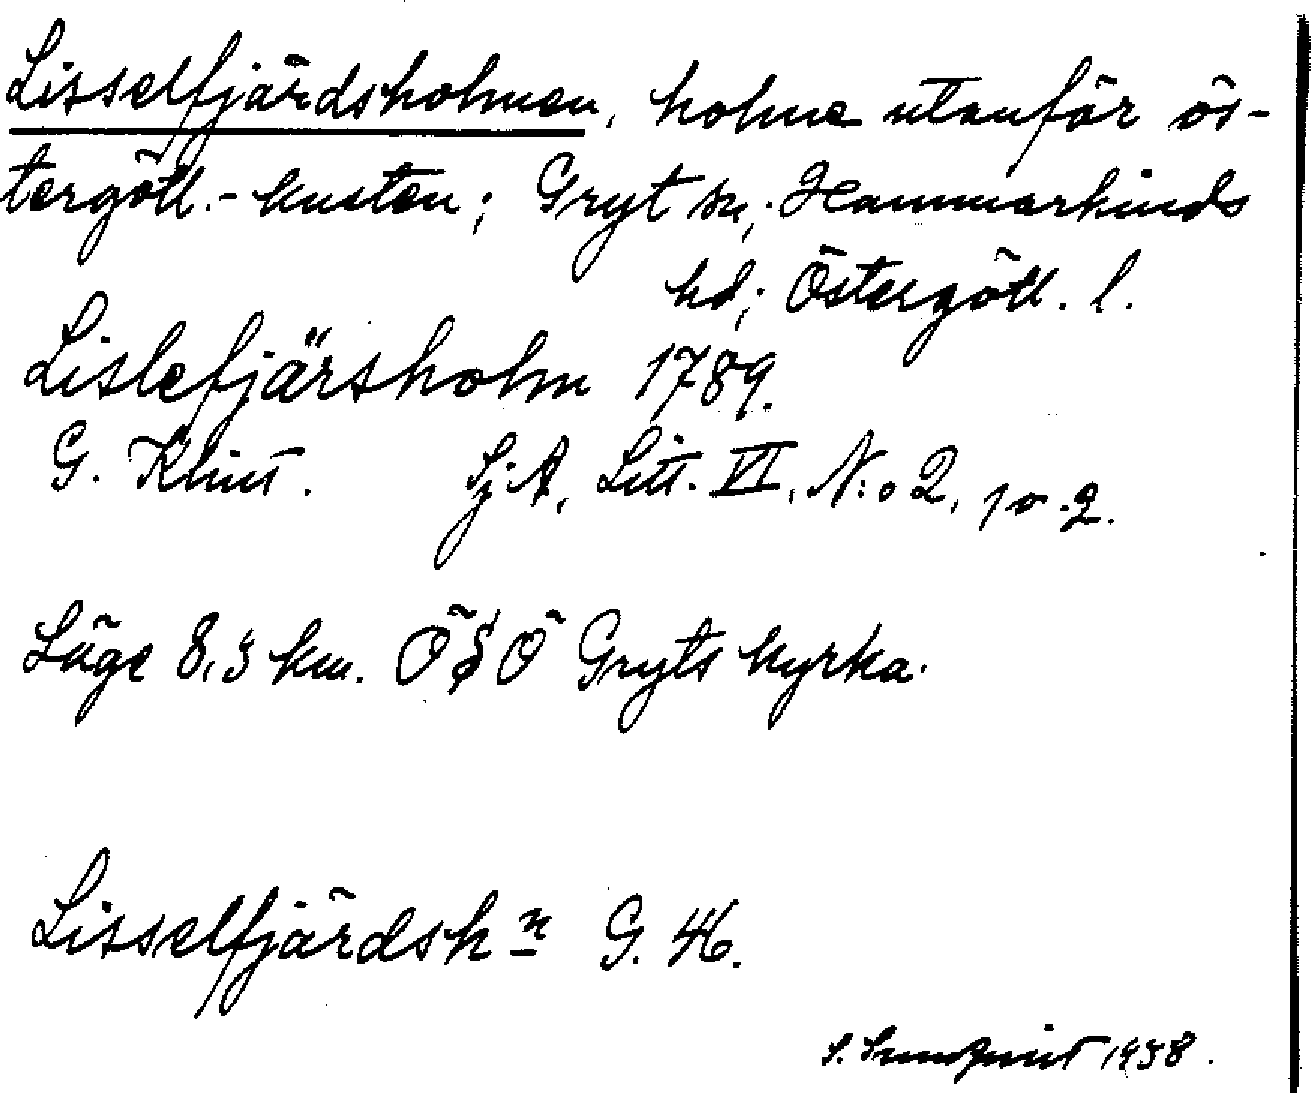 Lisselfjärdsholmen, holme utanför ös-
tergötl.-kusten; Gryt sn; Hammarkinds
hd; Östergötl. l.
Lislefjärsholm 1789.
G. Klint. Sj.A, Litt. VI, N:o 2, 10.2.
Läge 8,5 km. ÖSÖ Gryts kyrka.
Lisselfjärdsh n G. 46.
S. Sundquist 1938.